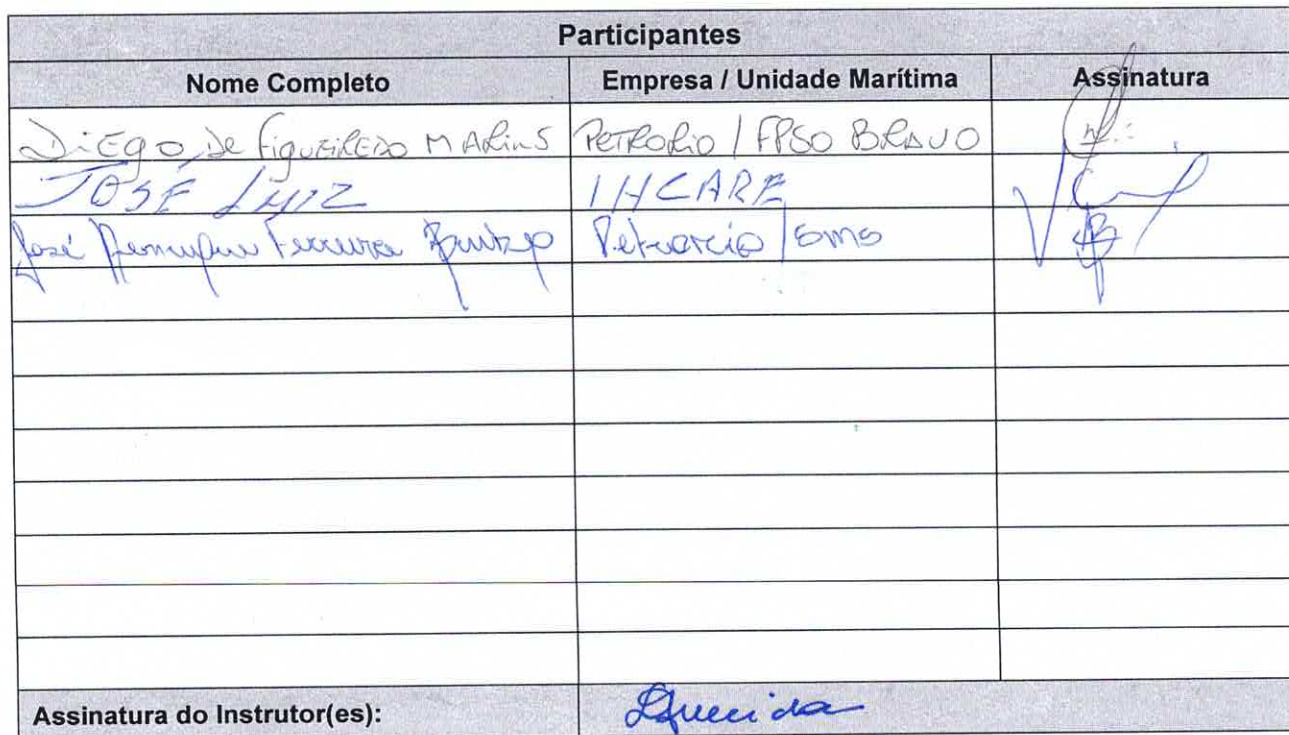 Participantes
Nome Completo Empresa / Unidade Marítima Assinatura
Diego de Figueiredo Marins PetroRio / FPSO BRAVO
JOSÉ LUIZ IHCARE
José Ferreira Petrorio / SMS
Assinatura do Instrutor(es):